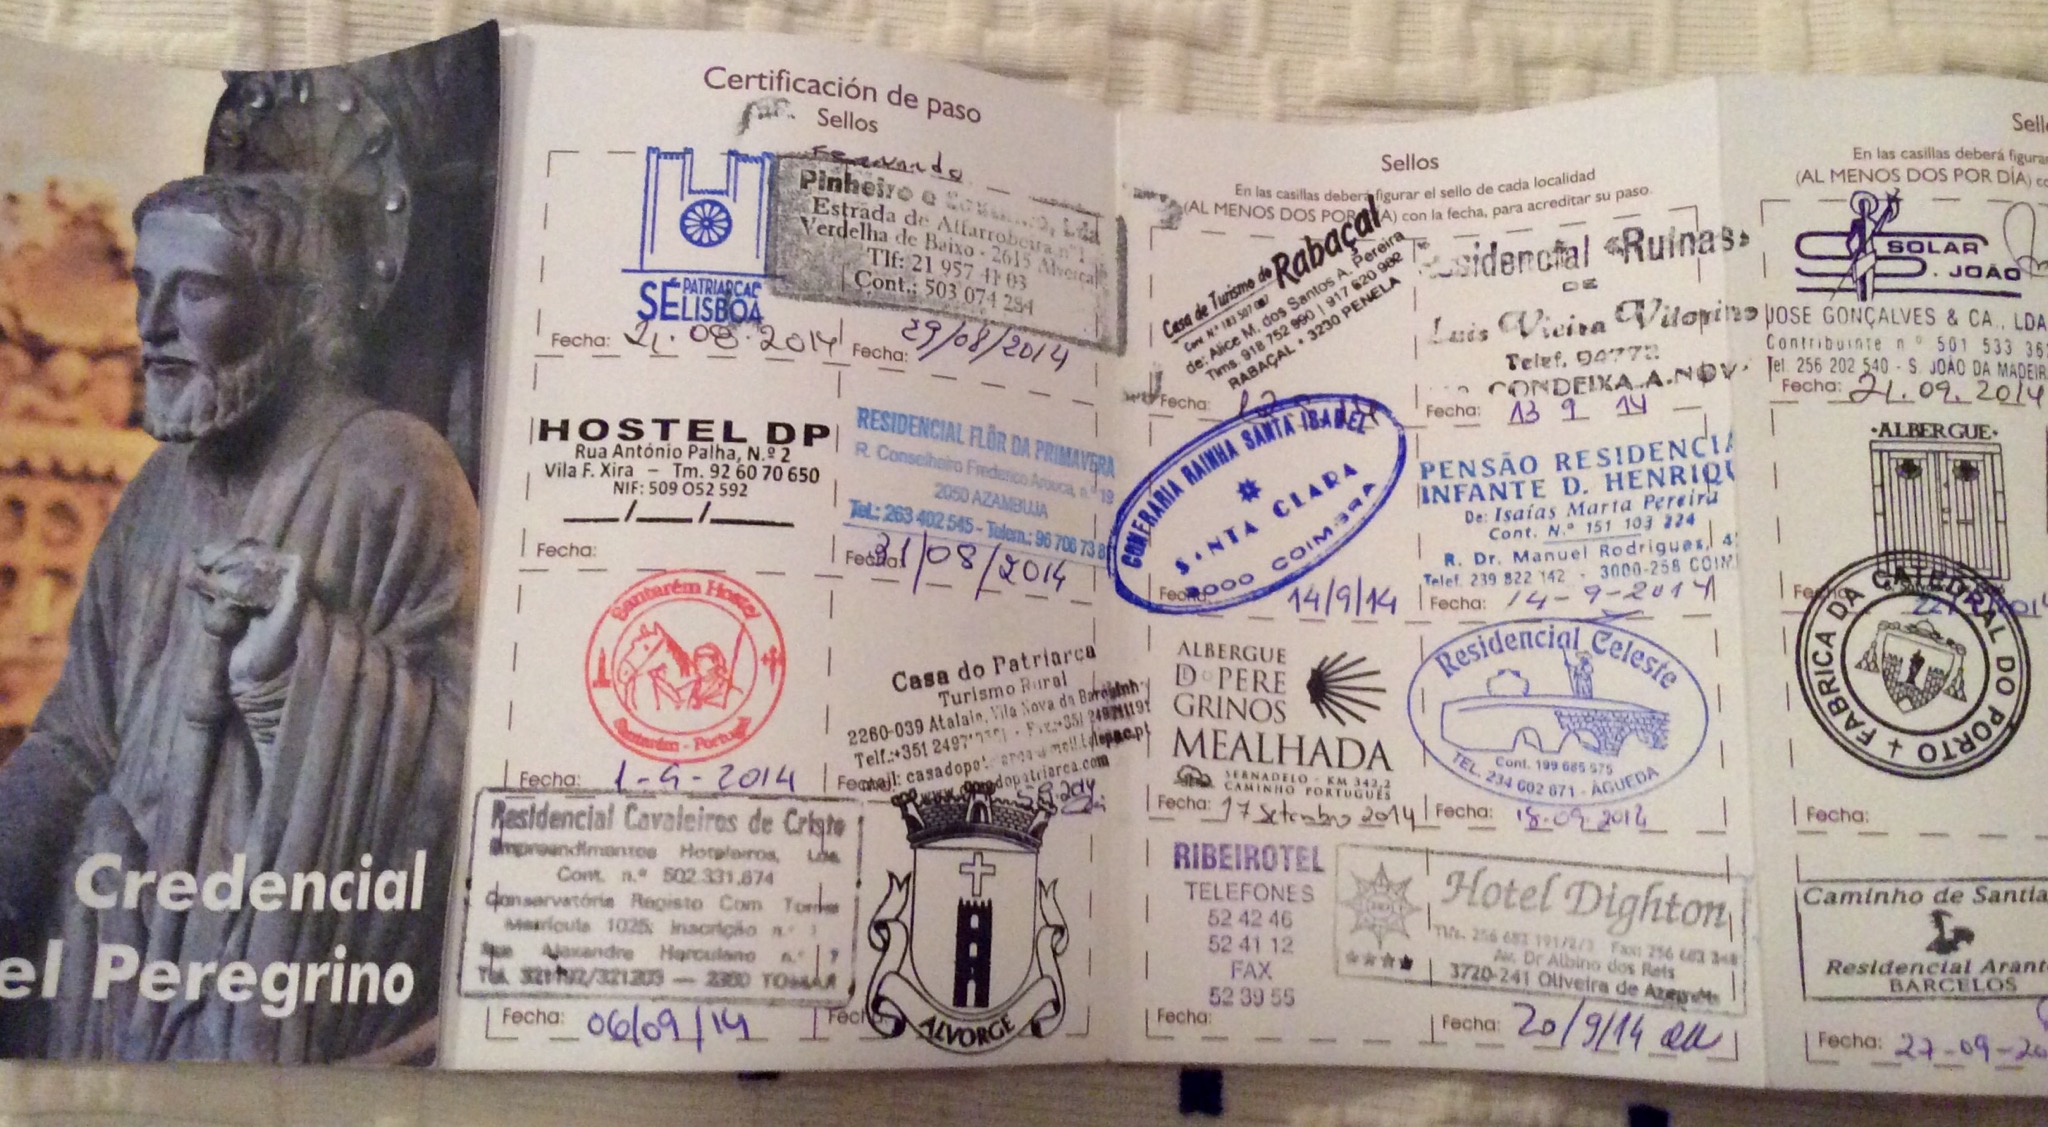 Credencial
el Peregrino
Certificación de paso
Sellos
SÉ PATRIARCAL
LISBOA
Fecha: 21.08.2014
Fernando
Pinheiro e
Estrada de Alfarrobeira nº1
Verdelha de Baixo - 2615 Alverca
Tlf: 21 957 41 03
Cont.: 503 074 284
Fecha: 29/08/2014
HOSTEL DP
Rua António Palha, N.º 2
Vila F. Xira – Tm. 92 60 70 650
NIF: 509 052 592
___/___/___
Fecha:
RESIDENCIAL FLÔR DA PRIMAVERA
R. Conselheiro Frederico Arouca, n.º 19
2050 AZAMBUJA
Tel.: 263 402 545 - Telem.: 96 706 73 8
Fecha: 31/08/2014
Santarém Hostel
Santarém - Portugal
Fecha: 1-9-2014
Casa do Patriarca
Turismo Rural
2260-039 Atalaia, Vila Nova da Barquinha
Telf.:+351 2497
mail: casadopat
www. adopatriarca.com
Residencial Cavaleiros de Cristo
Empreendimentos Hoteleiros, Lda.
Cont. n.º 502.331.674
Conservatória Registo Com Tomar
Matrícula 1025; Inscrição n.º 1
Rua Alexandre Herculano n.º 7
Tel. 321192/321203 — 2300 TOMAR
Fecha: 06/09/14
ALVORGE
Sellos
En las casillas deberá figurar el sello de cada localidad
(AL MENOS DOS POR DÍA) con la fecha, para acreditar su paso.
Casa de Turismo do Rabaçal
de: Alice M. dos Santos A. Pereira
Tlms. 918 752 990 | 917 620 982
RABAÇAL • 3230 PENELA
Fecha:
sidencial «Ruinas»
DE
Luis Vieira Vitorino
Telef. 94773
CONDEIXA-A-NOV
Fecha: 13 9 14
CONFRARIA RAINHA SANTA ISABEL
S NTA CLARA
3000 COIMBRA
Fecha: 14/9/14
PENSÃO RESIDENCIA
INFANTE D. HENRIQU
De: Isaías Marta Pereira
Cont. N.º 151 103 224
R. Dr. Manuel Rodrigues, 4
Telef. 239 822 142 - 3000-258 COIM
Fecha: 14-9-2014
ALBERGUE
DO PERE
GRINOS
MEALHADA
SERNADELO - KM 342,2
CAMINHO PORTUGUÊS
Fecha: 17 setembro 2014
Residencial Celeste
Cont. 199 685 575
TEL. 234 602 871 - ÁGUEDA
Fecha: 18-09-2014
RIBEIROTEL
TELEFONES
52 42 46
52 41 12
FAX
52 39 55
Fecha:
Hotel Dighton
Tlfs. 256 682 191/2/3 Fax: 256 682 248
Av. Dr Albino dos Reis
3720-241 Oliveira de Azeméis
Fecha: 20/9/14
Sell
En las casillas deberá figura
(AL MENOS DOS POR DÍA) co
SOLAR
S. JOÃO
JOSE GONÇALVES & CA., LDA
Contribuinte nº 501 533 36
Tel. 256 202 540 - S. JOÃO DA MADEIR
Fecha: 21.09.2014
·ALBERGUE·
FABRICA DA CATEDRAL DO PORTO
Fecha:
Caminho de Santia
Residencial Arant
BARCELOS
Fecha: 27-09-20